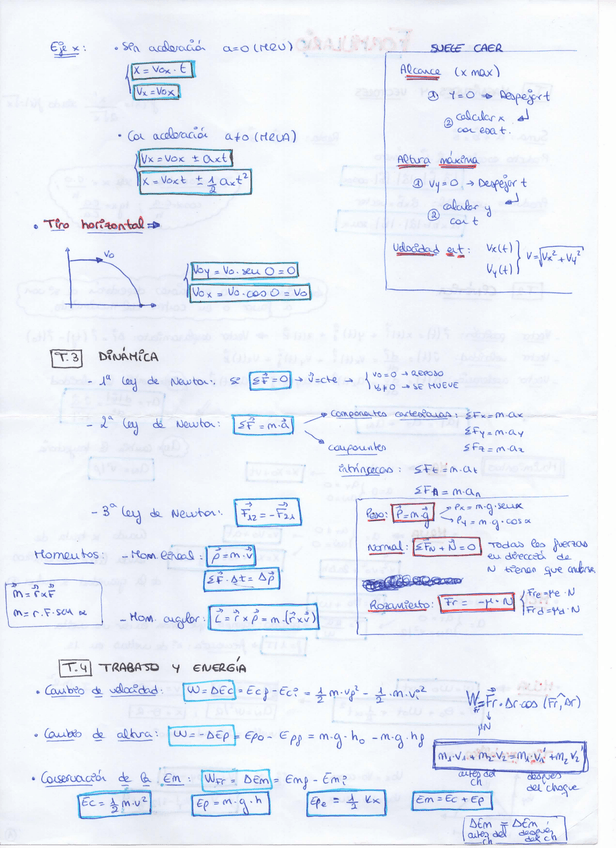 Eje x: • Sin aceleración a=0 (MRU)
x = v0x · t
Vx = V0x
• Con aceleración a≠0 (MRUA)
Vx = V0x ± axt
x = V0xt ± 1/2 axt²
SUELE CAER
Alcance (x max)
① Y=0 → Despejar t
② calcular x
con esa t.
Altura máxima
① Vy=0 → Despejar t
② calcular y
con t
Velocidad en t: Vx(t)
Vy(t) } V=√Vx²+Vy²
• Tiro horizontal ⇒
V0
V0y = V0 · sen 0 = 0
V0x = V0 · cos 0 = V0
T.3 DINÁMICA
- 1ª Ley de Newton: Se ΣF⃗=0 → v⃗=cte → { V0=0 → REPOSO
V0≠0 → SE MUEVE
- 2ª Ley de Newton: ΣF⃗ = m·a⃗ → componentes cartesianas: ΣFx = m·ax
ΣFy = m·ay
ΣFz = m·az
componentes
intrínsecas: ΣFt = m·at
ΣFn = m·an
- 3ª Ley de Newton: F⃗12 = -F⃗21
Momentos: - Mom lineal: p⃗ = m·v⃗
ΣF⃗ · Δt = Δp⃗
- Mom. angular: L⃗ = r⃗ x p⃗ = m·(r⃗ x v⃗)
m⃗ = r⃗ x F⃗
m = r·F·sen α
Peso: P⃗=m·g⃗ Px = m·g·sen α
Py = m·g·cos α
Normal: ΣF⃗N + N⃗ = 0 Todas las fuerzas
en dirección de
N tienen que
Rozamiento: Fr = -μ·N { Fre = μe·N
Frd = μd·N
T.4 TRABAJO Y ENERGÍA
• Cambio de velocidad: W = ΔEc = Ecf - Eci = 1/2 m·vf² - 1/2 ·m·vi²
WFr = F⃗r · Δr · cos (Fr, Δr)
μN
• Cambio de altura: W = -ΔEp = Ep0 - Epf = m·g·h0 - m·g·hf
m1·v1 + m2·v2 = m1·v1' + m2·v2'
antes del
ch
después
del choque
• Conservación de la Em: WFr = ΔEm = Emf - Emi
Ec = 1/2 m·v²
Ep = m·g·h
Epe = 1/2 Kx
Em = Ec + Ep
ΔEm = ΔEm
antes del
ch
después
del ch